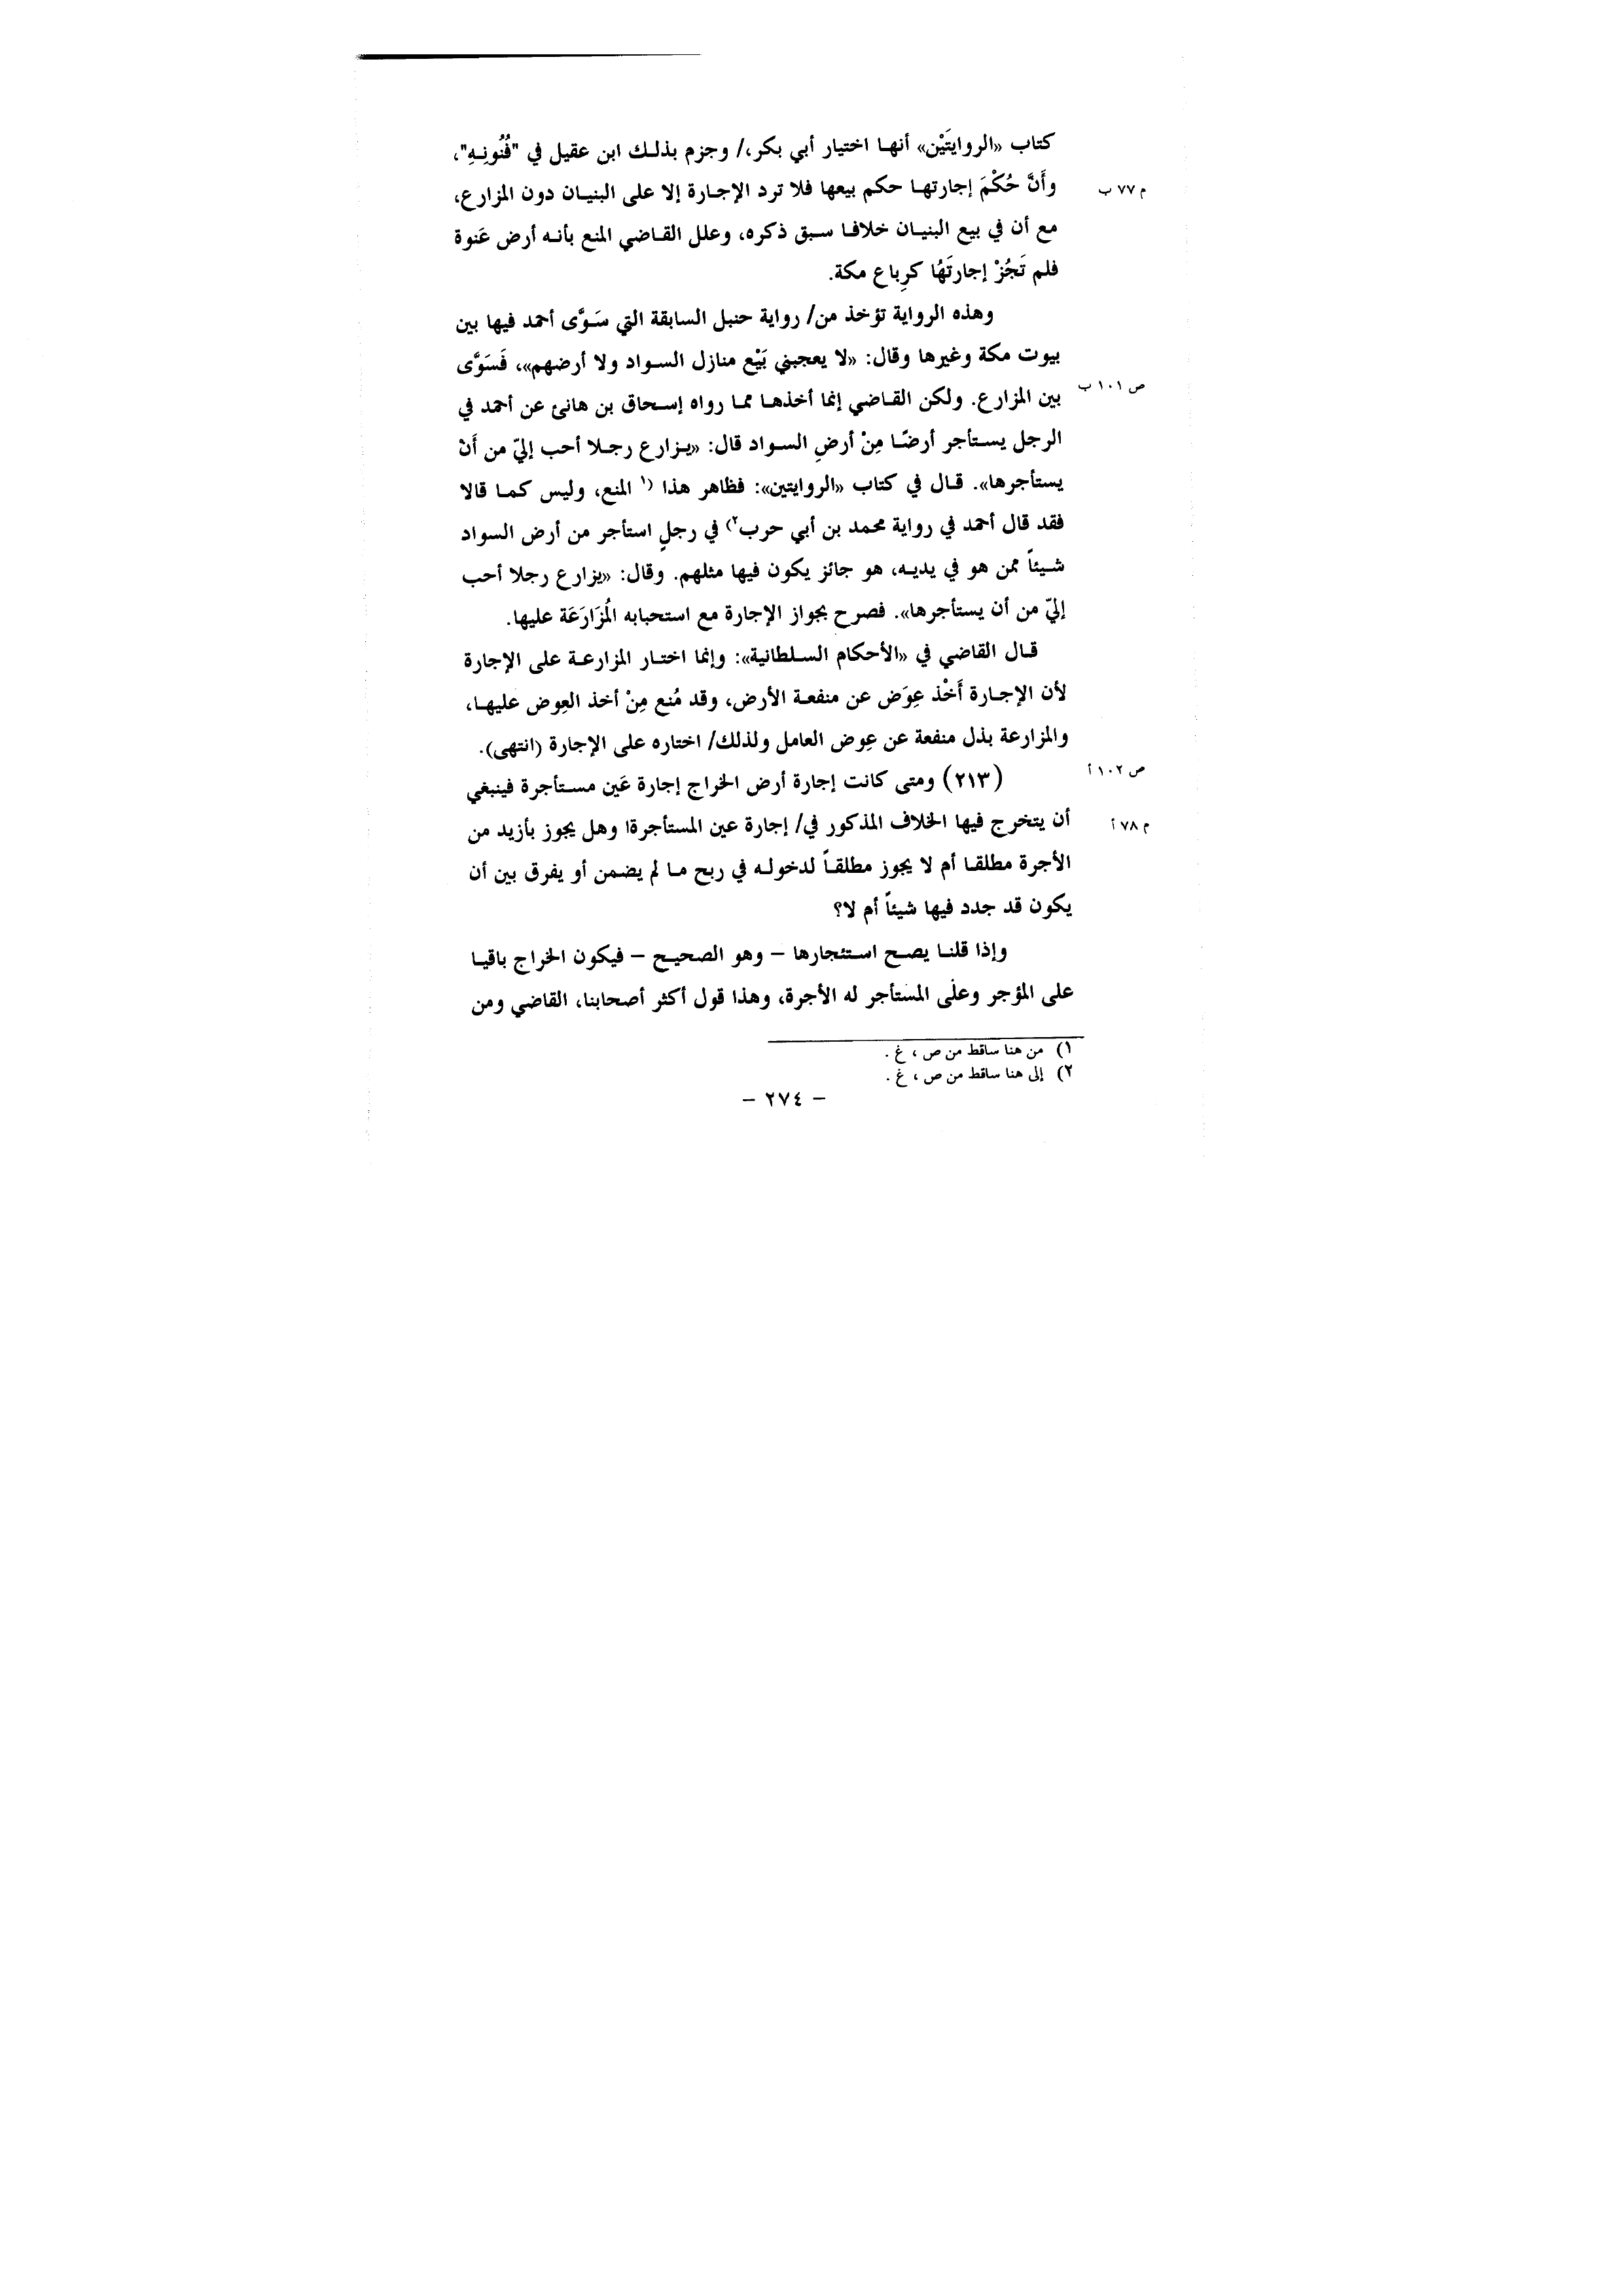 كتاب «الروايتَيْن» أنهـا اختيار أبي بكر،/ وجزم بذلـك ابن عقيل في "فُنُونِـهِ"،
م ٧٧ ب
وأَنَّ حُكْمَ إجارتهـا حكم بيعها فلا ترد الإجـارة إلا على البنيـان دون المزارع،
مع أن في بيع البنيـان خلافـا سـبق ذكره، وعلل القـاضي المنع بأنـه أرض عَنوة
فلم تَجُزْ إجارتَهُا كرِباع مكة.
وهذه الرواية تؤخذ من/ رواية حنبل السابقة التي سَـوَّى أحمد فيها بين
بيوت مكة وغيرها وقال: «لا يعجبني بَيْع منازل السـواد ولا أرضهم»، فَسَوَّى
ص ١٠١ ب
بين المزارع. ولكن القـاضي إنما أخذهـا ممـا رواه إسـحاق بن هانئ عن أحمد في
الرجل يسـتأجر أرضًـا مِنْ أرضِ السـواد قال: «يـزارع رجـلا أحب إليّ من أَنْ
يستأجرها». قـال في كتاب «الروايتين»: فظاهر هذا (١ المنع، وليس كمـا قالا
فقد قال أحمد في رواية محمد بن أبي حرب٢) في رجلٍ استأجر من أرض السواد
شـيئاً ممن هو في يديـه، هو جائز يكون فيها مثلهم. وقال: «يزارع رجلا أحب
إليّ من أن يستأجرها». فصرح بجواز الإجارة مع استحبابه المُزَارَعَة عليها.
قـال القاضي في «الأحكام السـلطانية»: وإنما اختـار المزارعـة على الإجارة
لأن الإجـارة أَخْذ عِوَض عن منفعـة الأرض، وقد مُنع مِنْ أخذ العِوض عليهـا،
والمزارعة بذل منفعة عن عِوض العامل ولذلك/ اختاره على الإجارة (انتهى).
ص ١٠٢ أ
(٢١٣) ومتى كانت إجارة أرض الخراج إجارة عَين مسـتأجرة فينبغي
أن يتخرج فيها الخلاف المذكور في/ إجارة عين المستأجرة! وهل يجوز بأزيد من
م ٧٨ أ
الأجرة مطلقـا أم لا يجوز مطلقـاً لدخولـه في ربح مـا لم يضمن أو يفرق بين أن
يكون قد جدد فيها شيئاً أم لا؟
وإذا قلنـا يصـح اسـتئجارها – وهو الصحيـح – فيكون الخراج باقيـا
على المؤجر وعلى المستأجر له الأجرة، وهذا قول أكثر أصحابنا، القاضي ومن
١) من هنا ساقط من ص ، غ .
٢) إلى هنا ساقط من ص ، غ .
– ٢٧٤ –